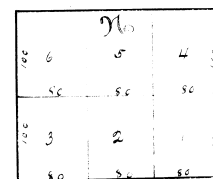 No
100 6 5 4
80 80 80
100 3 2
80 80 80